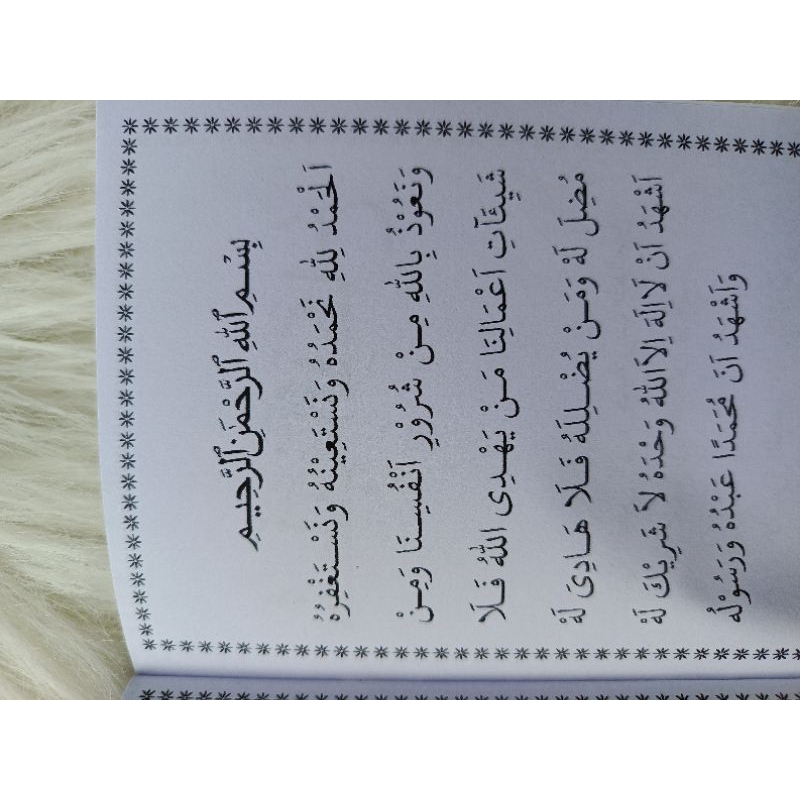 بِسْمِ اللهِ الرَّحْمٰنِ الرَّحِيْمِ
اَلْحَمْدُ لِلّٰهِ نَحْمَدُهُ وَنَسْتَعِيْنُهُ وَنَسْتَغْفِرُهُ
وَنَعُوْذُ بِاللهِ مِنْ شُرُوْرِ اَنْفُسِنَا وَمِنْ
شَيِّئَاتِ اَعْمَالِنَا مَنْ يَهْدِى اللهُ فَلَا
مُضِلَ لَهُ وَمَنْ يُضْلِلْهُ فَلَا هَادِىَ لَهُ
اَشْهَدُ اَنْ لَا اِلٰهَ اِلاَّ اللهُ وَحْدَهُ لاَ شَرِيْكَ لَهُ
وَاَشْهَدُ اَنَّ مُحَمَّدًا عَبْدُهُ وَرَسُوْلُهُ